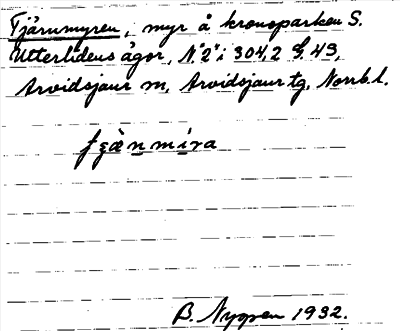 Tjärnmyren, myr å kronoparken S.
Utterlidens ägor, N "2" i 304,2 G. 49,
Arvidsjaur sn, Arvidsjaur tg, Norrb. l.
B. Nygren 1932.